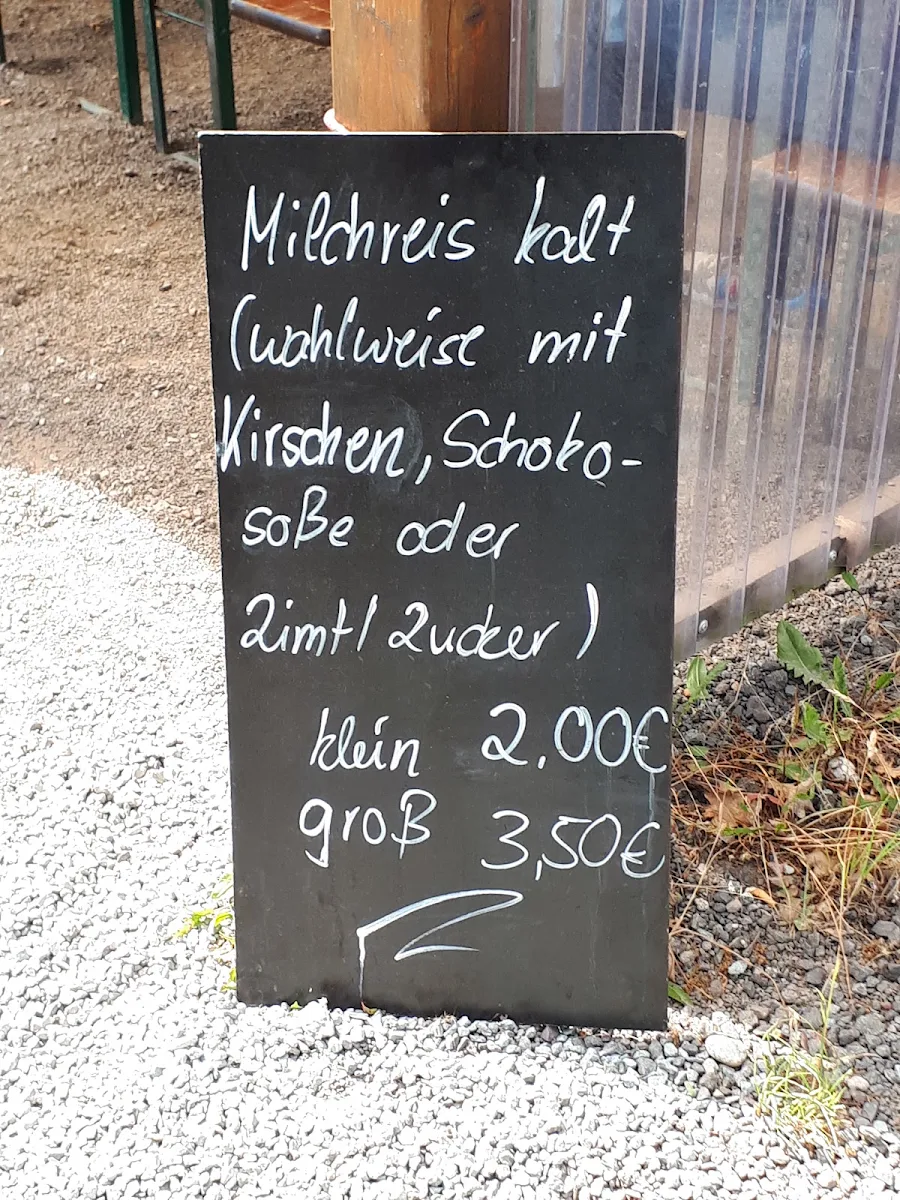 Milchreis kalt
(wahlweise mit
Kirschen, Schoko-
soße oder
Zimt/Zucker)
klein 2.00€
groß 3,50€